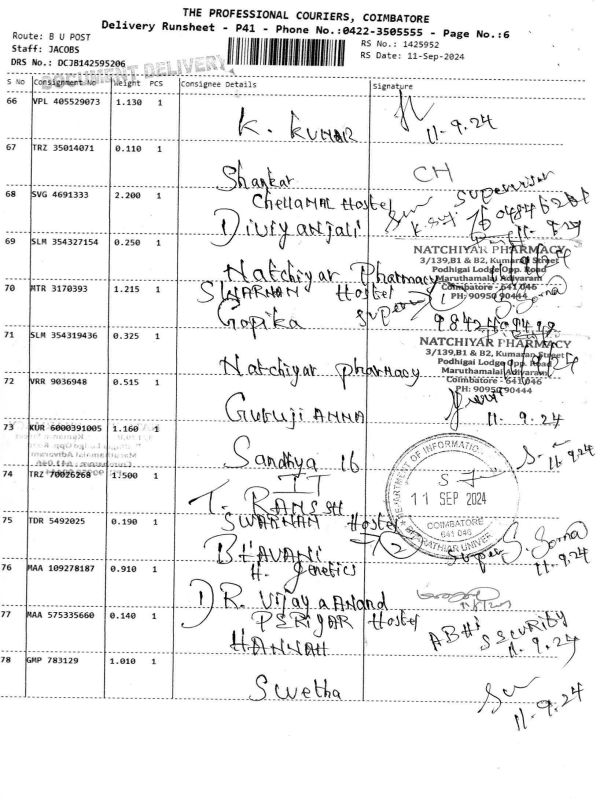 THE PROFESSIONAL COURIERS, COIMBATORE
Delivery Runsheet - P41 - Phone No.:0422-3505555 - Page No.:6
Route: B U POST
RS No.: 1425952
Staff: JACOBS
RS Date: 11-Sep-2024
DRS No.: DCJB142595206
DOCUMENT DELIVERY
S No Consignment No Weight PCS Consignee Details Signature
66 VPL 405529073 1.130 1
K. KUMAR
11.9.24
67 TRZ 35014071 0.110 1
Shankar
CH
68 SVG 4691333 2.200 1
Chellamal Hostel
Supervisor
Diviyanjali
11.9.24
69 SLM 354327154 0.250 1
NATCHIYAR PHARMACY
3/139,B1 & B2, Kumaran Street
Podhigai Lodge Opp. Road
Maruthamalai Adivaram
Coimbatore - 641 046
PH: 90950 90444
Natchiyar Pharmacy
70 MTR 3170393 1.215 1
SWARNAM Hostel
Gopika
71 SLM 354319436 0.325 1
NATCHIYAR PHARMACY
3/139,B1 & B2, Kumaran Street
Podhigai Lodge Opp. Road
Maruthamalai Adivaram
Coimbatore - 641 046
PH: 90950 90444
Natchiyar pharmacy
72 VRR 9036948 0.515 1
Guruji ANNA
11.9.24
73 KUR 6000391005 1.160 1
Sandhya 16
74 TRZ 70026268 1.500 1
IT
DEPARTMENT OF INFORMATIO
11 SEP 2024
COIMBATORE
641 046
BHARATHIAR UNIVER
75 TDR 5492025 0.190 1
SWARNAM Hostel
2
BHAVANI
Super S. Soma
11.9.24
76 MAA 109278187 0.910 1
H. Genetics
DR. Vijay a Anand
77 MAA 575335660 0.140 1
PERIYAR Hostel
HANNAH
ABHI
SSCURITY
11.9.24
78 GMP 783129 1.010 1
Swetha
11.9.24